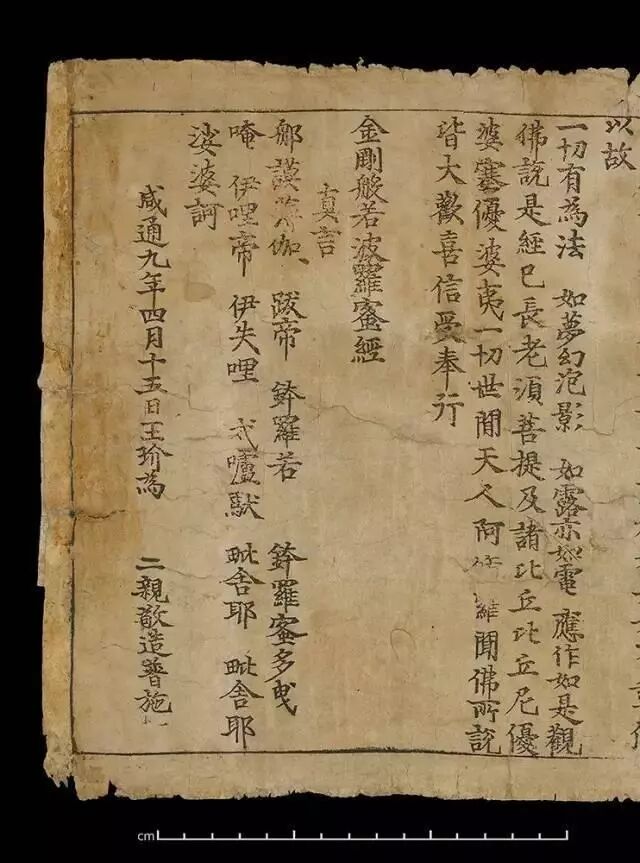 以故
一切有為法 如夢幻泡影 如露亦如電 應作如是觀
佛說是經已長老湏菩提及諸比丘比丘尼優
婆塞優婆夷一切世間天人阿 羅聞佛所說
皆大歡喜信受奉行
金剛般若波羅蜜經
真言
那謨薄伽 跋帝 鉢羅若 鉢羅蜜多曳
唵 伊哩帝 伊失哩 戍嚧馱 毗舍耶 毗舍耶
娑婆訶
咸通九年四月十五日王玠為 二親敬造普施
cm